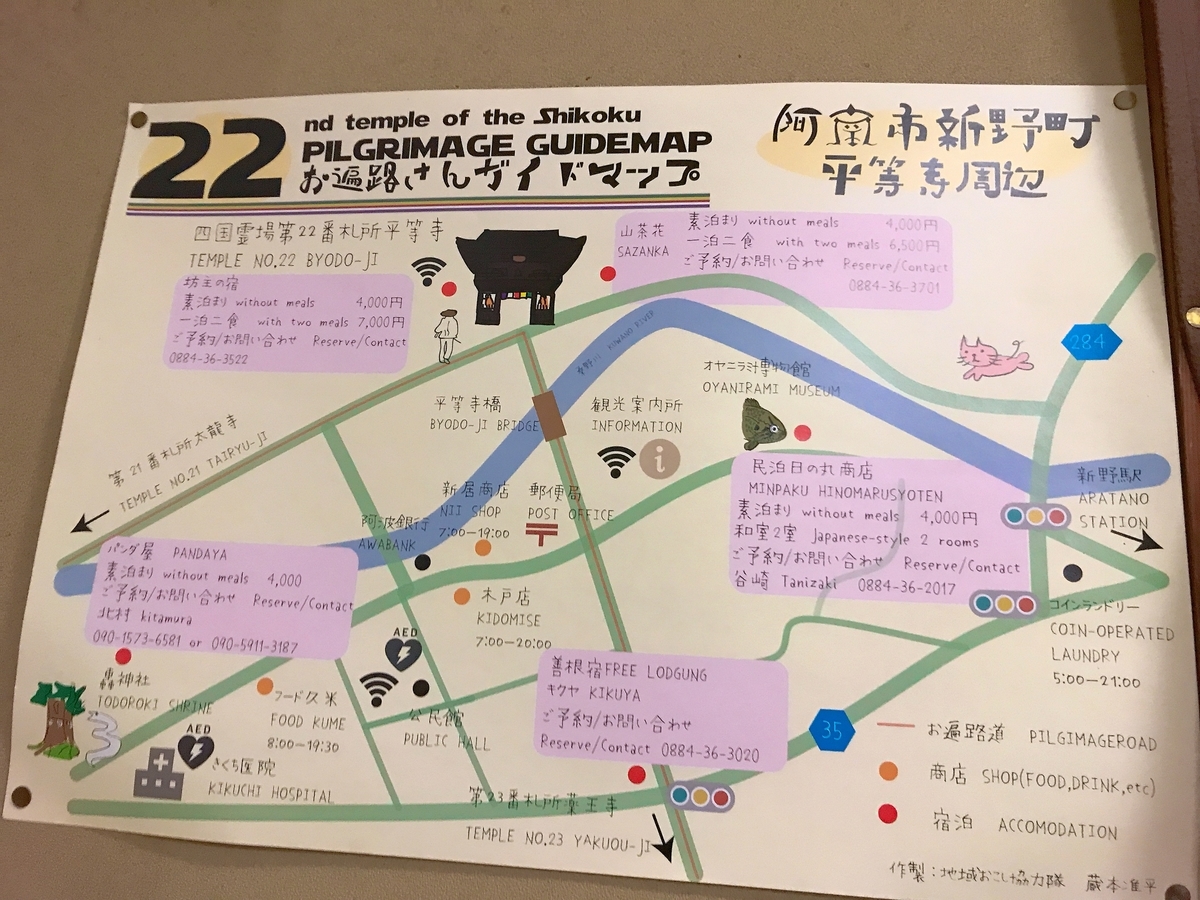 22
nd temple of the Shikoku
PILGRIMAGE GUIDEMAP
お遍路さんガイドマップ
阿南市新野町
平等寺周辺
四国霊場第22番札所平等寺
TEMPLE NO.22 BYODO-JI
坊主の宿
素泊まり without meals 4,000円
一泊二食 with two meals 7,000円
ご予約/お問い合わせ Reserve/Contact
0884-36-3522
山茶花
SAZANKA
素泊まり without meals 4,000円
一泊二食 with two meals 6,500円
ご予約/お問い合わせ Reserve/Contact
0884-36-3701
284
桑野川 KUWANO RIVER
オヤニラミ博物館
OYANIRAMI MUSEUM
平等寺橋
BYODO-JI BRIDGE
観光案内所
INFORMATION
i
第21番札所太龍寺
TEMPLE NO.21 TAIRYU-JI
民泊日の丸商店
MINPAKU HINOMARUSYOTEN
素泊まり without meals 4,000円
和室2室 Japanese-style 2 rooms
ご予約/お問い合わせ Reserve/Contact
谷崎 Tanizaki 0884-36-2017
新野駅
ARATANO
STATION
新居商店
NII SHOP
7:00-19:00
郵便局
POST OFFICE
阿波銀行
AWABANK
パンダ屋 PANDAYA
素泊まり without meals 4,000
ご予約/お問い合わせ Reserve/Contact
北村 kitamura
090-1573-6581 or 090-5911-3187
木戸店
KIDOMISE
7:00-20:00
コインランドリー
COIN-OPERATED
LAUNDRY
5:00-21:00
AED
善根宿FREE LODGUNG
キクヤ KIKUYA
ご予約/お問い合わせ
Reserve/Contact 0884-36-3020
轟神社
TODOROKI SHRINE
フード久米
FOOD KUME
8:00-19:30
公民館
PUBLIC HALL
AED
きくち医院
KIKUCHI HOSPITAL
35
第23番札所薬王寺
TEMPLE NO.23 YAKUOU-JI
お遍路道 PILGIMAGEROAD
商店 SHOP(FOOD,DRINK,etc)
宿泊 ACCOMODATION
作製:地域おこし協力隊 蔵本准平